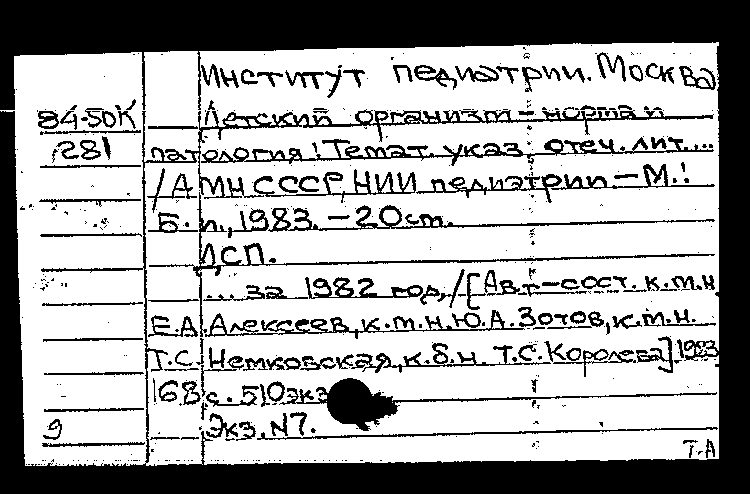 Институт педиатрии. Москва
84-50К Детский организм – норма и
281 патология: Темат. указ. отеч. лит. ...
/АМН СССР, НИИ педиатрии – М.:
Б. и., 1983. – 20 см.
ДСП.
... за 1982 год, /[Авт-сост. к.м.н.
Е.А. Алексеев, к.м.н. Ю.А. Зотов, к.м.н.
Т.С. Немковская, к.б.н. Т.С. Королева] 1983
168 с. 510 экз
9 Экз. N7.
Т-А